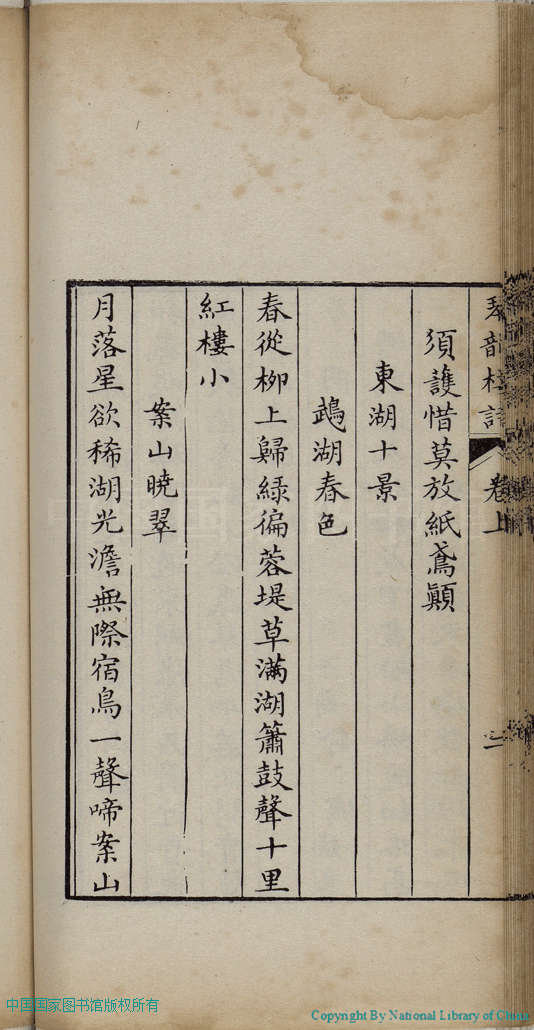 須護惜莫放紙鳶顚
東湖十景
鵡湖春色
春從柳上歸綠徧蓉堤草滿湖簫鼓聲十里
紅樓小
案山曉翠
月落星欲稀湖光澹無際宿鳥一聲啼案山
卷上
二
中国国家图书馆版权所有
Copyright By National Library of China